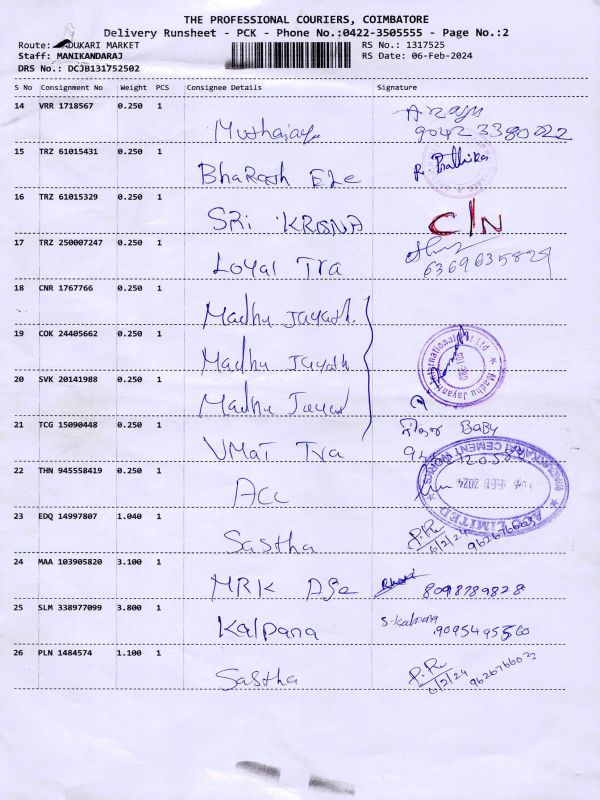 THE PROFESSIONAL COURIERS, COIMBATORE
Delivery Runsheet - PCK - Phone No.:0422-3505555 - Page No.:2
Route: DUKARI MARKET RS No.: 1317525
Staff: MANIKANDARAJ RS Date: 06-Feb-2024
DRS No.: DCJB131752502
S No Consignment No Weight PCS Consignee Details Signature
14 VRR 1718567 0.250 1
90423380022
15 TRZ 61015431 0.250 1
Bharath Ele R. Prathika
16 TRZ 61015329 0.250 1
SRi KRISNA C/N
17 TRZ 250007247 0.250 1
Loyal Tra 6369635829
18 CNR 1767766 0.250 1
Madhu Jayath.
19 COK 24405662 0.250 1
Madhu Jayath
Madhu Jayanti International Pvt Ltd
20 SVK 20141988 0.250 1
Madhu Jayat
21 TCG 15090448 0.250 1 BABY
UMaT Tra
22 THN 945558419 0.250 1
ACC
ACC LIMITED CEMENT WORKS FEB 2024
23 EDQ 14997807 1.040 1
Sastha P.R 6/2/24
24 MAA 103905820 3.100 1
MRK Age 8098789828
25 SLM 338977099 3.800 1
Kalpana S. Kalpana 9095495560
26 PLN 1484574 1.100 1
Sastha P.R 6/2/24 9626766022